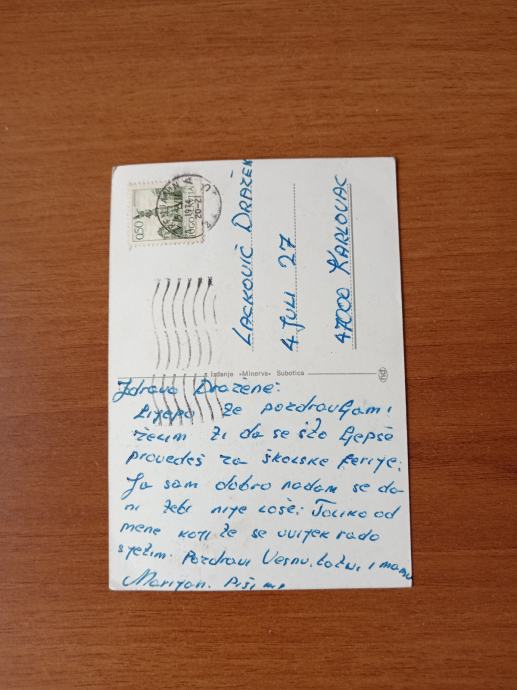 0,50
1974
20-21
LACKOVIĆ DRAŽEN
4 JULI 27
47000 KARLOVAC
Izdanje »Minerva« Subotica
Zdravo Dražene!
Lijepo te pozdravljam i
želim ti da se što ljepše
provedeš za školske ferije.
Ja sam dobro nadam se da
ni tebi nije loše. Toliko od
mene koji te se uvijek rado
sjetim. Pozdravi Vesnu, tatu i mamu
Marijan. Piši mi